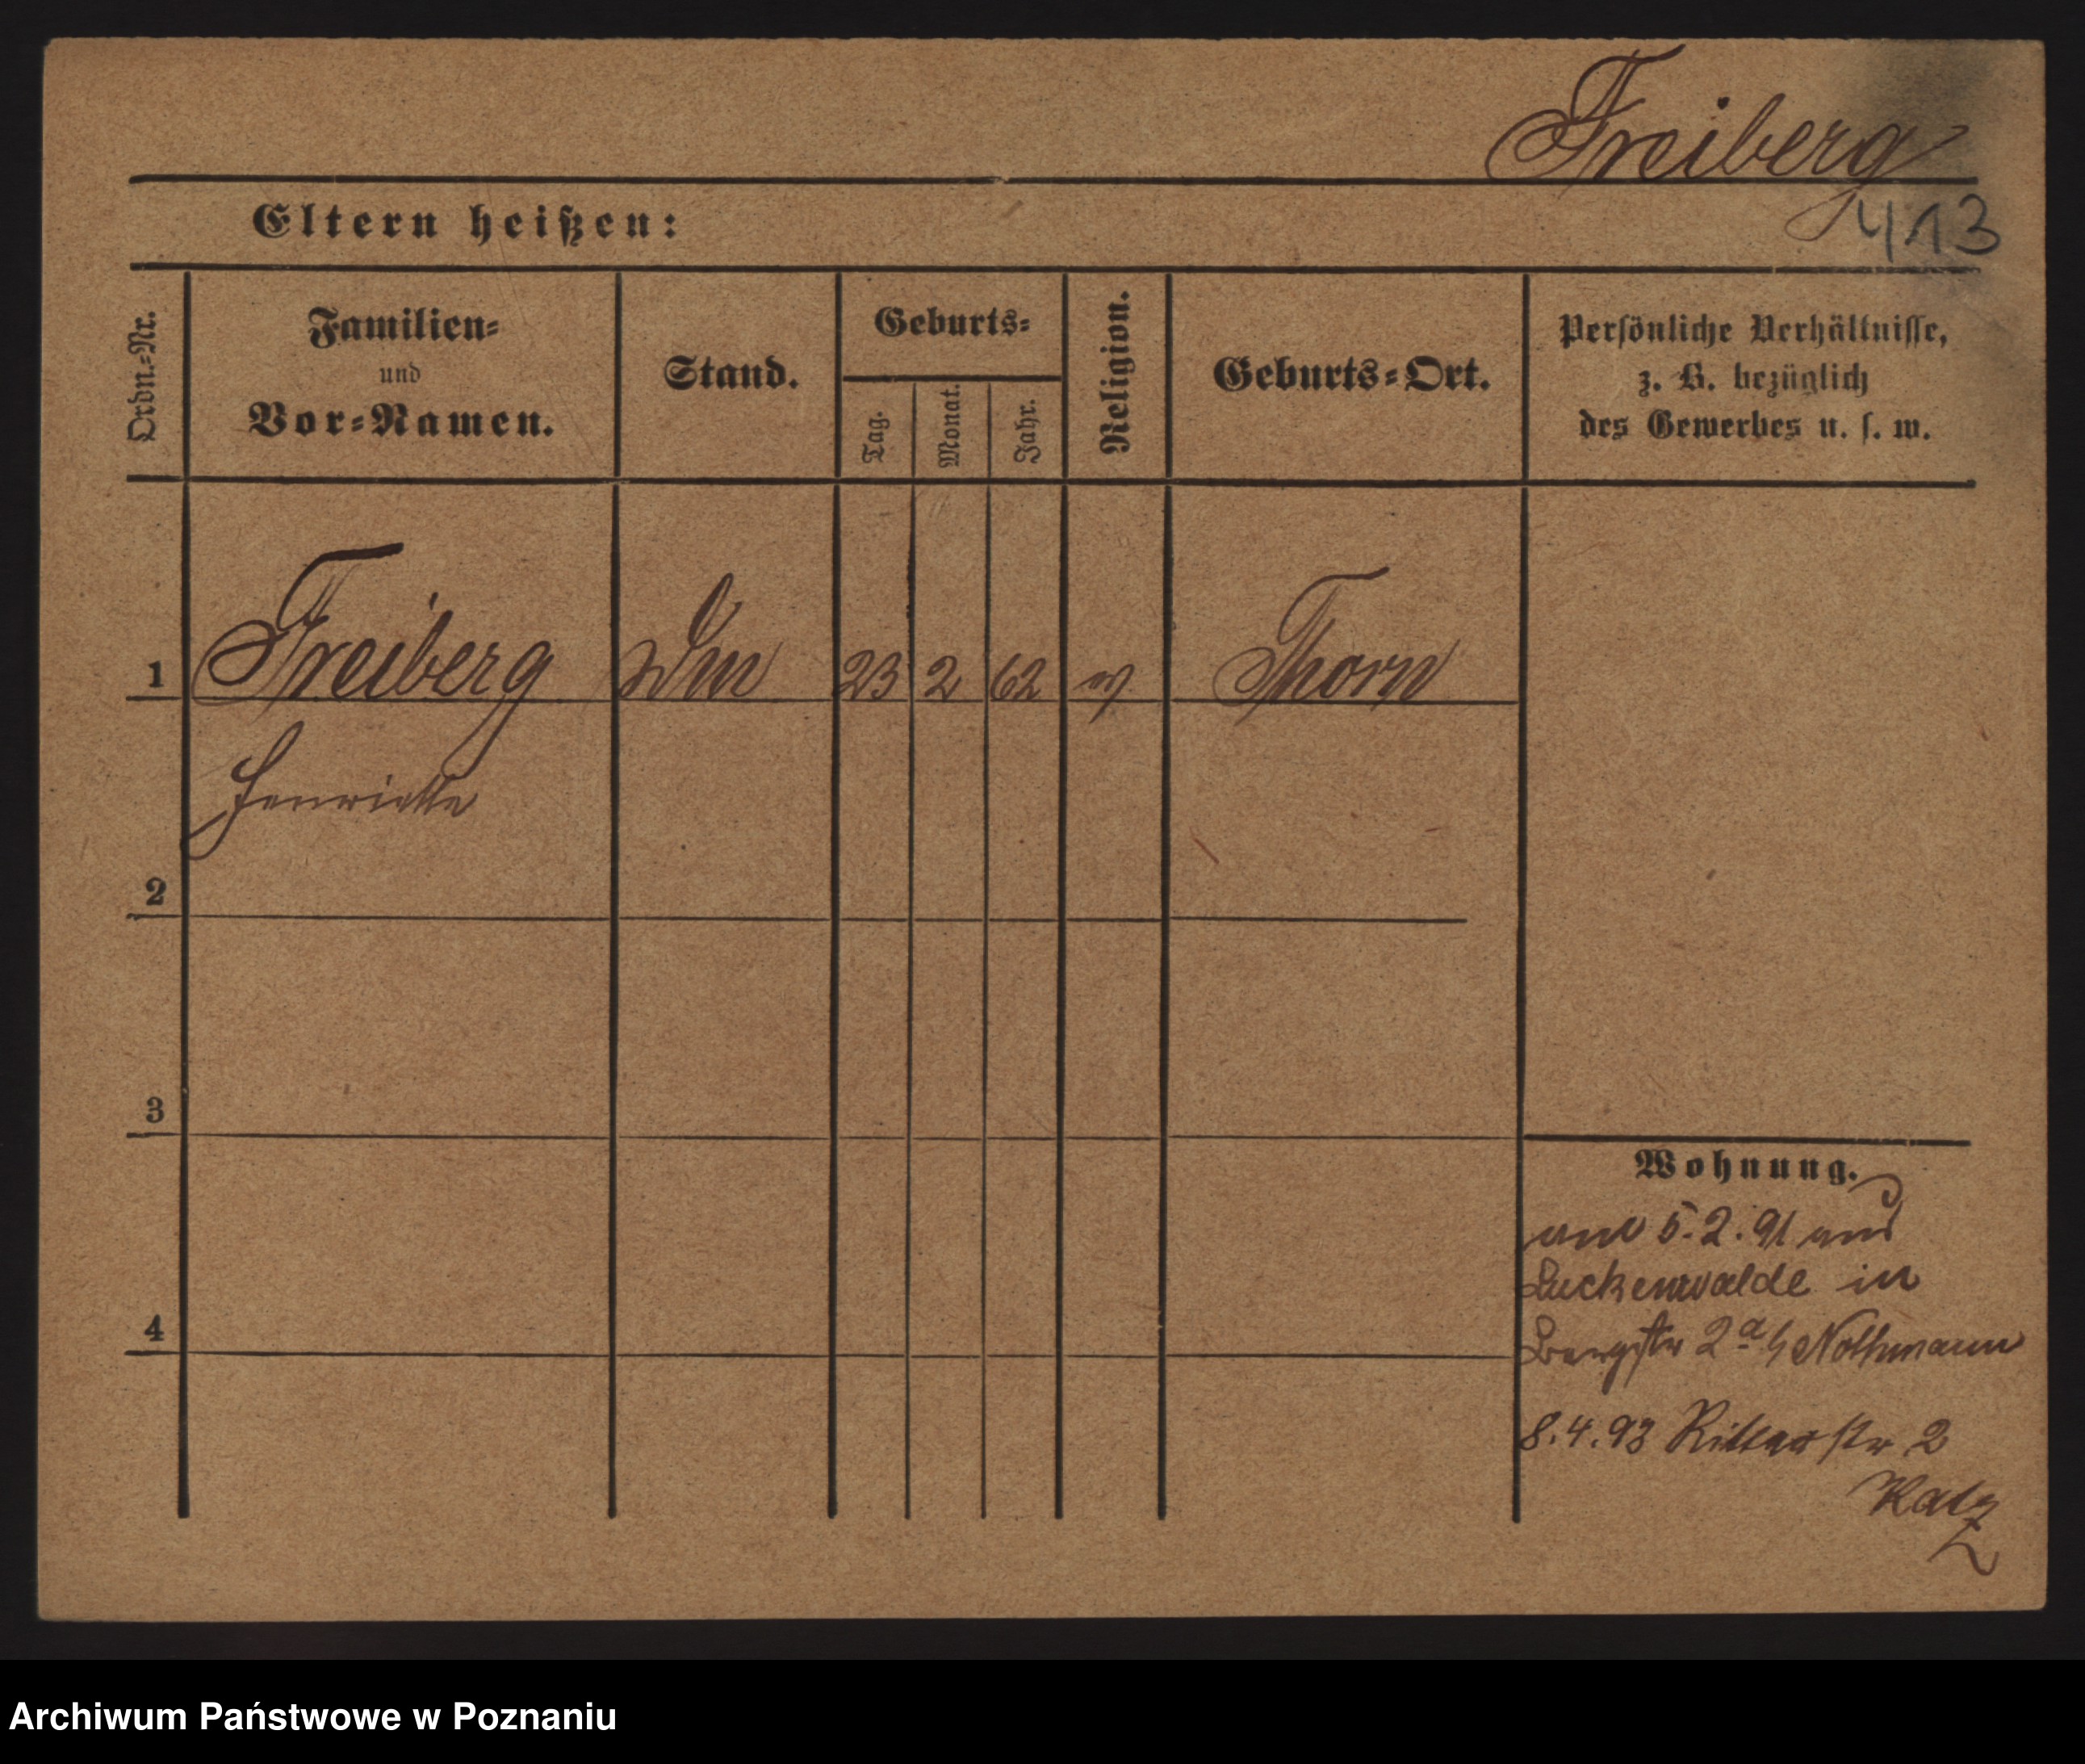 Freiberg
413
Eltern heißen:
Ordn.=Nr.
Familien=
und
Vor=Namen.
Stand.
Geburts=
Tag.
Monat.
Jahr.
Religion.
Geburts=Ort.
Persönliche Verhältnisse,
z. B. bezüglich
des Gewerbes u. s. w.
1 Freiberg 23 2 62 Thorn
Henriette
2
3
4
Wohnung.
5.2.91 aus
Luckenwalde in
Bergstr 2a b/ Nothmann
8.4.93 Ritterstr 2
Katz
Archiwum Państwowe w Poznaniu